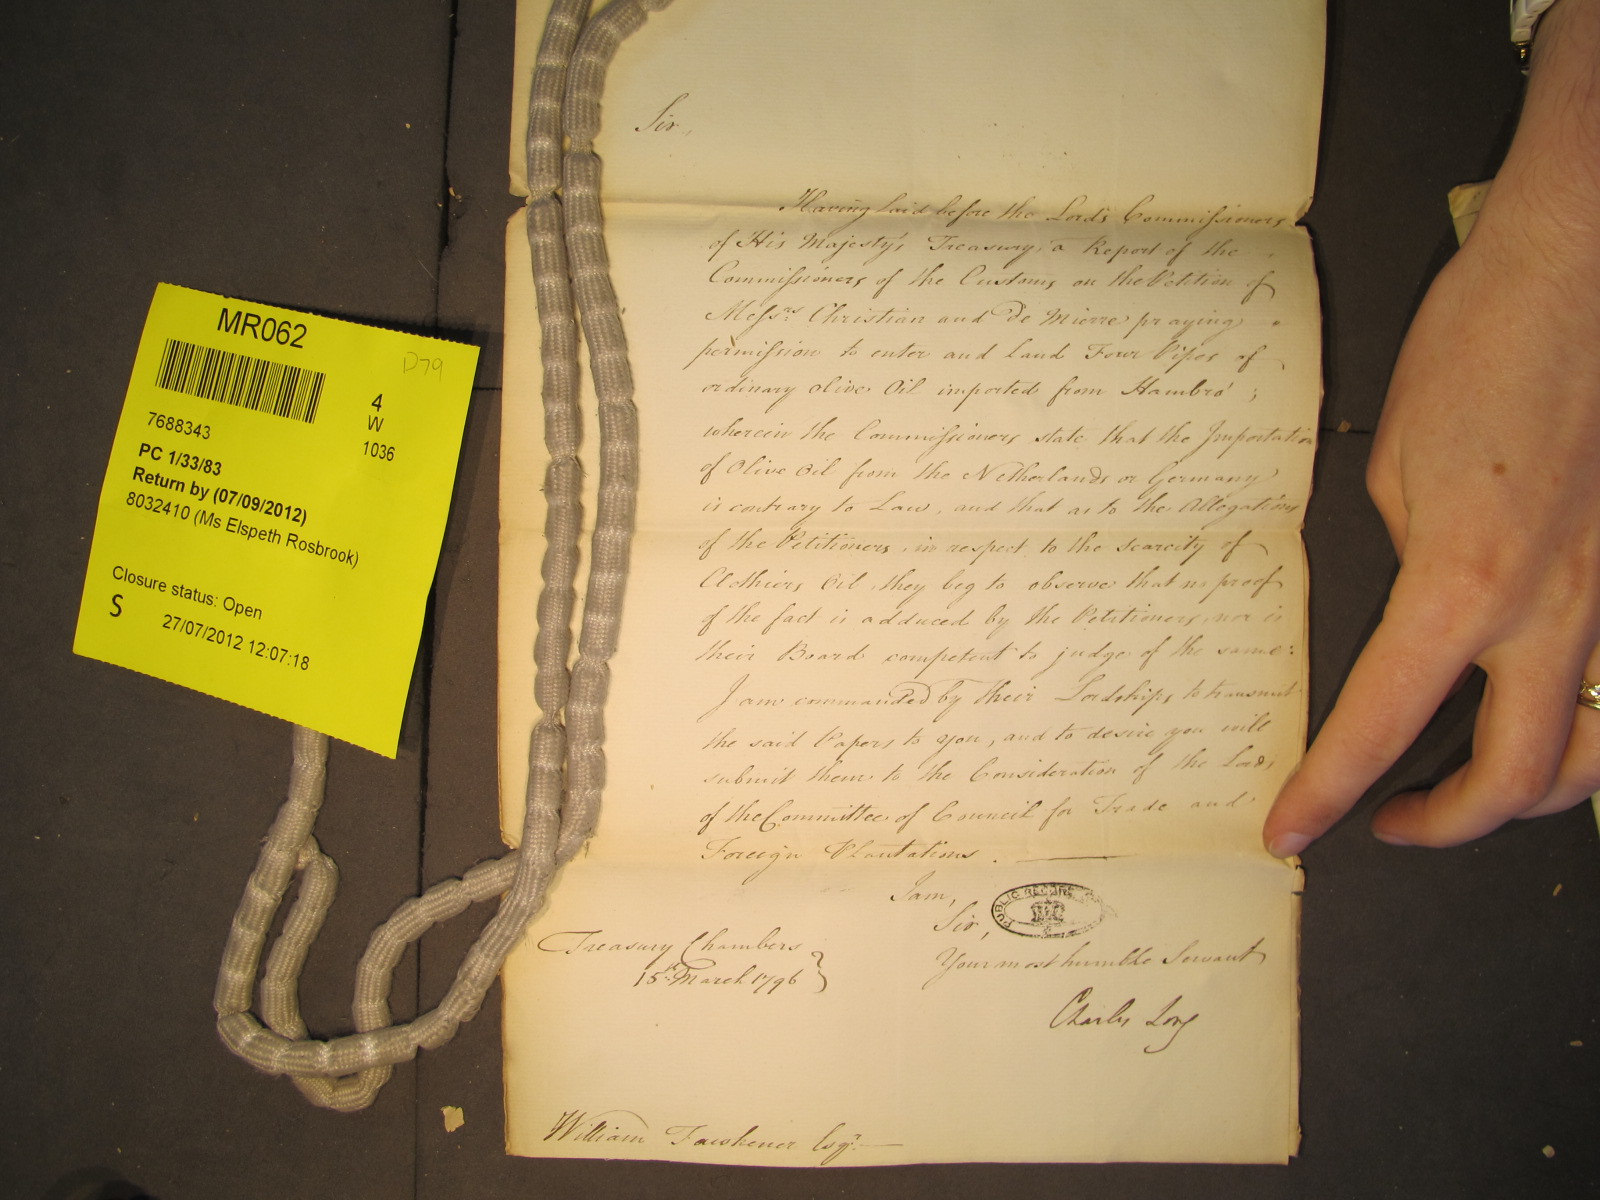 MR062
D79
4
W
1036
7688343
PC 1/33/83
Return by (07/09/2012)
8032410 (Ms Elspeth Rosbrook)
Closure status: Open
S
27/07/2012 12:07:18
Sir,
Having laid before the Lords Commissioners
of His Majesty's Treasury, a Report of the
Commissioners of the Customs on the Petition of
Messrs. Christian and De Mierre praying
permission to enter and land Four Pipes of
ordinary Olive Oil imported from Hambro';
wherein the Commissioners state that the Importation
of Olive Oil from the Netherlands or Germany
is contrary to Law, and that as to the Allegations
of the Petitioners, in respect to the scarcity of
Clothiers Oil, they beg to observe that no proof
of the fact is adduced by the Petitioners, nor is
their Board competent to judge of the same:
I am commanded by their Lordships to transmit
the said Papers to you, and to desire you will
submit them to the Consideration of the Lords
of the Committee of Council for Trade and
Foreign Plantations.
I am,
Sir,
PUBLIC RECORD
Your most humble Servant
Treasury Chambers
15th March 1796
Charles Long
William Fawkener Esqr.